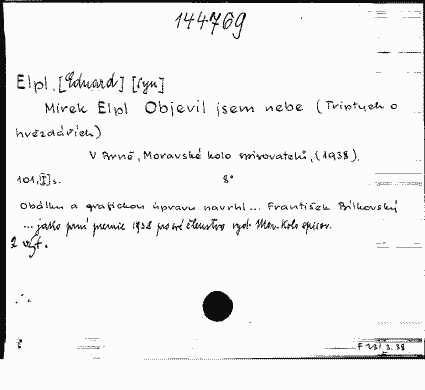 144769
Elpl, [Eduard] [syn]
Mirek Elpl Objevil jsem nebe (Triptych o
hvězdářích)
V Brně, Moravské kolo spisovatelů, (1938),
101, [I] s. 8°
Obálku a grafickou úpravu navrhl ... František Bílkovský
... jako první premie 1938 pro své čtenstvo vyd. Mor. kolo spisov.
2 výt.
F 28/3.38